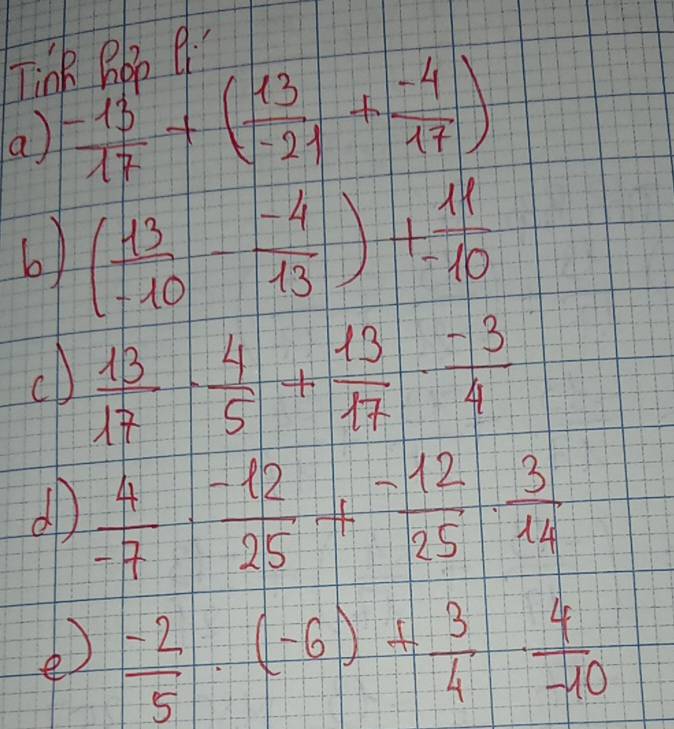 Tính hợp lí
a) -13/17 + (13/-21 + -4/17)
b) (13/-10 - -4/13) + 11/-10
c) 13/17 . 4/5 + 13/17 . -3/4
d) 4/-7 . -12/25 + -12/25 . 3/14
e) -2/5 . (-6) + 3/4 . 4/-10